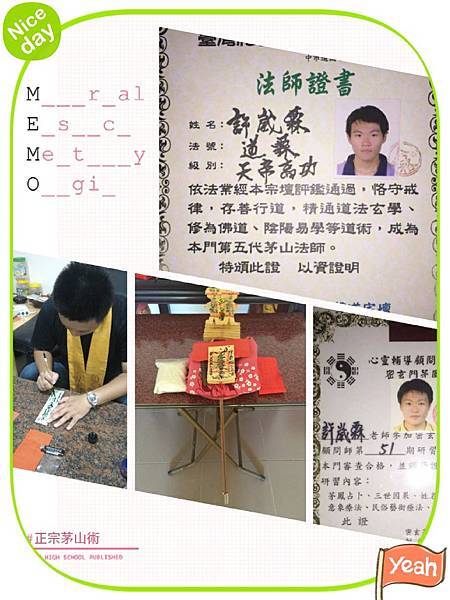 Nice
day
M___r_al
E_s__c_
Me_t___y
O__gi_
中市道
法師證書
姓名：許崴霖
法號：道霖
級別：天帝高功
依法業經本宗壇評鑑通過，恪守戒
律，存善行道，精通道法玄學、
修為佛道、陰陽易學等道術，成為
本門第五代茅山法師。
特頒此證 以資證明
心靈輔導顧問
密玄門茅
許崴霖老師參加密玄
顧問師第51期研習
本門審查合格，並
研習內容：
茅鳳占卜、三世因果、姓名
意象療法、民俗藝術療法、
此證
密玄
#正宗茅山術
HIGH SCHOOL PUBLISHED
Yeah